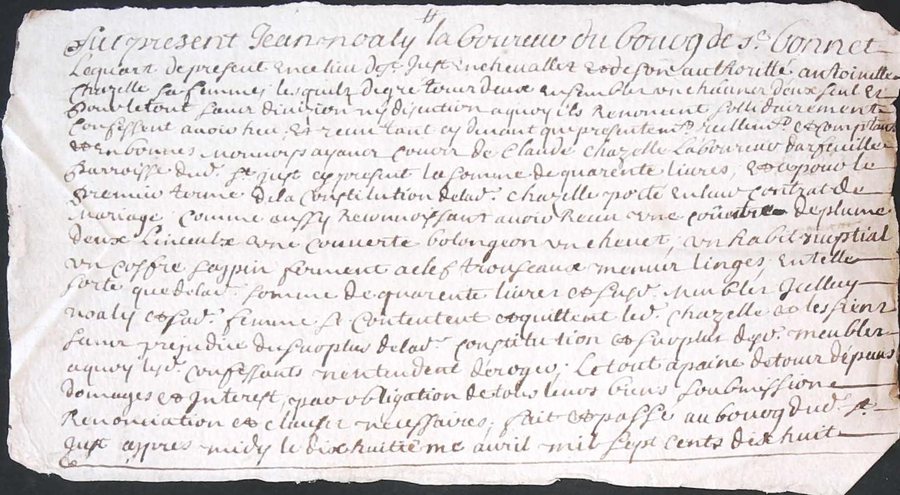 Fut present Jean noaly laboureur du bourg de st bonnet
Lequart de present en ce lieu de st Just en chevallet et de son authorité antoinette
Chazelle sa femme, lesquelz de gre tour deux ensembler un chaiuner deux seul et
pour le tout sans division ny disjuction a quoy ils Renoncent sollidairement
Confessent avoir heu et receu tant cy devant que presentemt reellemt et comptant
et en bonnes monnoys ayancr courr de Claude chazelle Laboureur darfeuille
Parroisse dud. st Just cy present la somme de quarente livres, et ce pour le
premier terme de la Constitution de lad. chazelle porte en leur contrat de
Mariage, Comme aussy Reconnoissant avoir Receu une couitte de plume
deux Linceulx une couverte bolongeon un chevet, un habit nuptial
un coffre sappin ferment a clef trousseaux menuir linges, en telle
sorte que de lad. somme de quarente livrer et susd. Meubler Jcelluy
noaly et sad. femme se Contentent et quittent led. Chazelle et les siens
sanr prejudice du surplus de lad. constitution et surplus desd. meubler
a quoy lesd. Confessants nentendent deroger; Le tout a paine de tour dépans
domages et Interest, par obligation de tous leurs biens soubmissione
Renonciation et clauser necessaires; fait et passe au bourg dud. st
Just appres midy le dix huitième avril mil sept cents dix huit